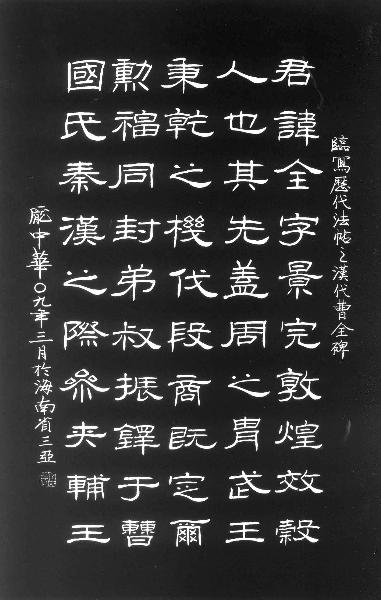 臨寫歷代法帖之漢代曹全碑
君諱全字景完敦煌效穀
人也其先盖周之胄武王
秉乾之機代段商既定爾
勳福同封弟叔振鐸于曹
國氏秦漢之際參夾輔王
龐中華〇九年三月於海南省三亞